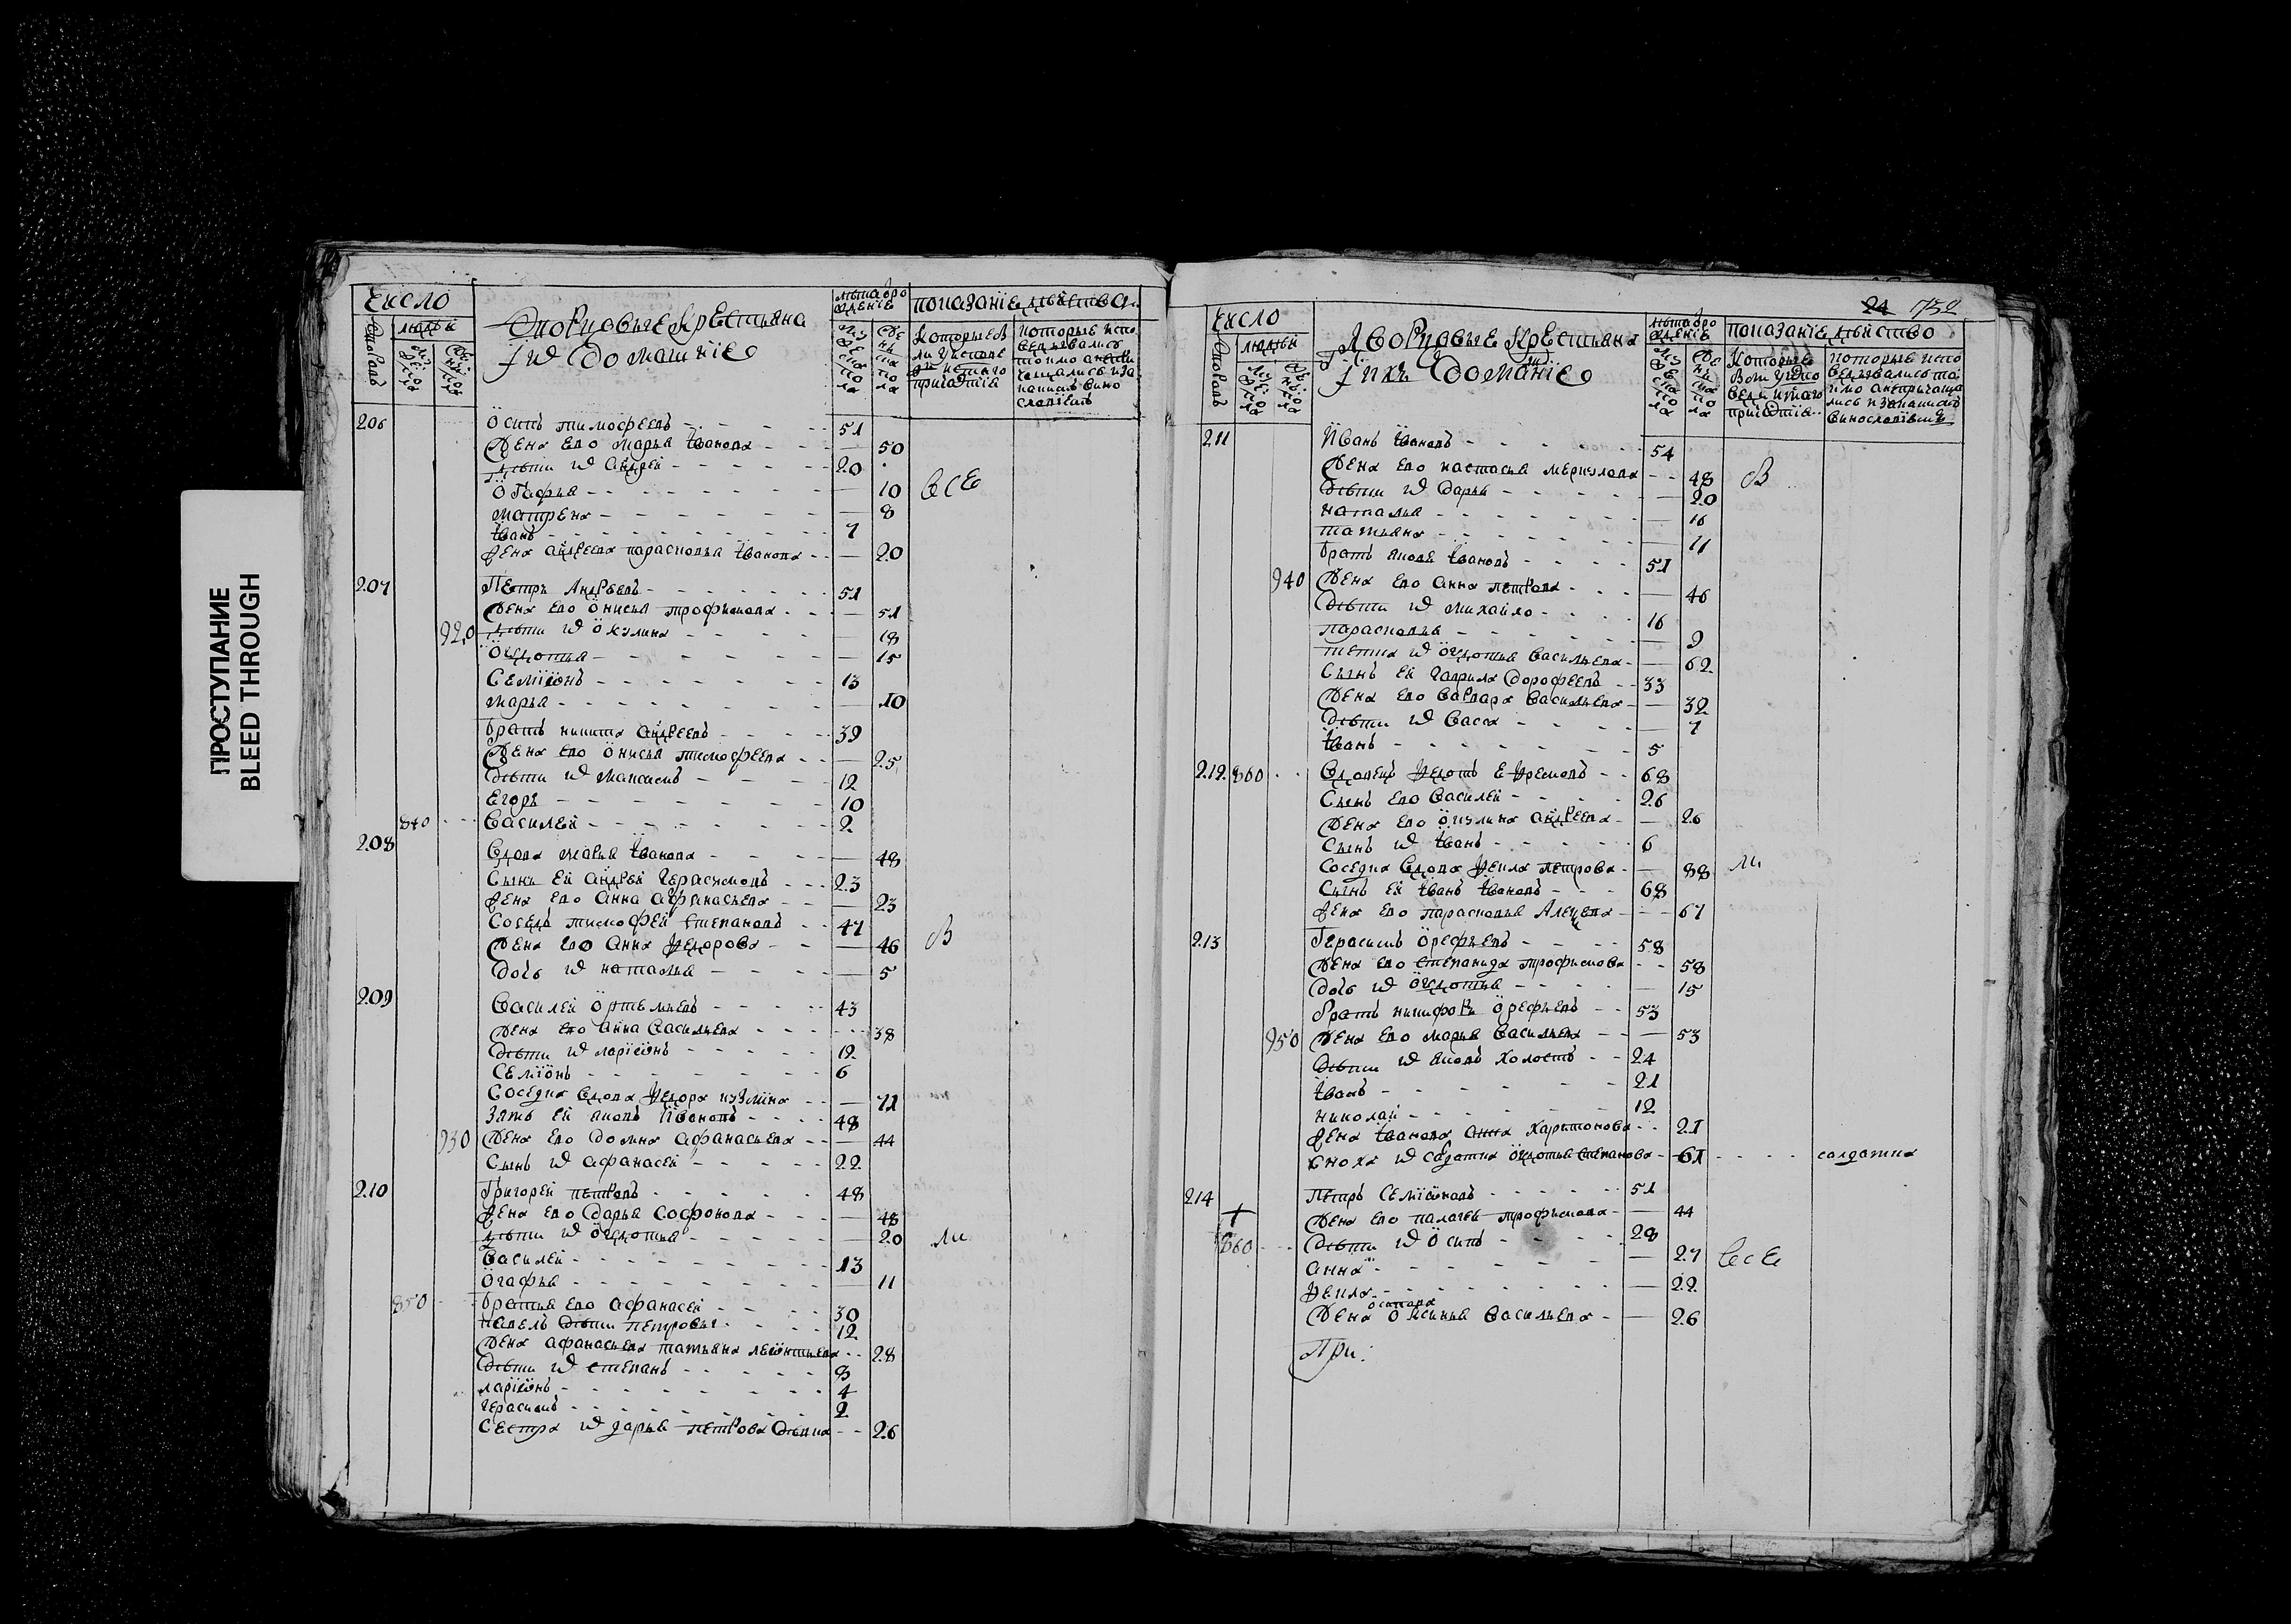 ПРОСТУПАНИЕ
BLEED THROUGH
Число
людей
Дворцовыя крестьяна
и ихъ домашнїе
206 Ѻсипъ тимоѳеевъ 51
Жена ево марья Иванова 50
дѣти их Андрей 20
Ѻгафья 10
все
матрена 8
Иванъ 7
жена андреева парасковья Иванова 20
207 Петръ Андреевъ 51
Жена ево Ѻнисья трофимова 51
920 дѣти их Ѻкулина 18
Ѻвдотья 15
Семїонъ 13
марья 10
братъ никита андреевъ 39
Жена ево Ѻнисья тимофеева 25
дѣти их максимъ 12
Егоръ 10
840 Василей 2
208
Вдова марья Иванова 48
Сынъ ей андрей Герасимовъ 23
жена ево анна афанасьева 23
Соседъ тимофей степановъ 47
Жена ево анна федорова 46
В
дочь их наталья 5
209
Василей Ѻртемьевъ 43
жена ево анна Васильева 38
дѣти их ларїонъ 12
Семїонъ 6
Соседка вдова федора кузмина 71
Зять ей яковъ Ивановъ 48
930 Жена ево домна афанасьева 44
Сынъ их афанасей 22
210 Григорей петровъ 48
жена ево дарья Софонова 48
дѣти их Ѻвдотья 20
ли
Василей 13
Ѻгафья 11
850 братья ево афанасей 30
павелъ дѣти петровы 12
Жена афанасьева татьяна леонтьева 28
дѣти их степанъ 8
ларїонъ 4
герасимъ 2
Сестра их дарья петрова девка 26
24 752
Число
людей
Дворцовые крестьяна
и ихъ доманїе
показанїе дѣйство
211 Иванъ Ивановъ 54
Жена ево настасья меркулова 48
В
дѣти их дарья 20
наталья 16
татьяна 11
братъ яковъ Ивановъ 51
940 Жена ево анна петрова 46
дѣти их михайло 16
парасковья 9
тетка их Ѻвдотья васильева 62
Сынъ ей гаврила дорофеевъ 33
Жена ево варвара васильева 32
дѣти их васса 7
Иванъ 5
212 860 Вдовецъ федотъ Ефремовъ 68
Сынъ ево василей 26
жена ево Ѻкулина андреева 26
Сынъ их Иванъ 6
Соседка вдова фекла петрова 88
ли
Сынъ ей Иванъ Ивановъ 68
жена ево парасковья Алексева 67
213 Герасимъ Ѻрефьевъ 58
Жена ево степанида трофимова 58
дочь их Ѻвдотья 15
братъ никифоръ Ѻрефьевъ 53
950 Жена ево марья васильева 53
дѣти их яковъ холостъ 24
Иванъ 21
николай 12
жена Иванова анна харитонова 21
сноха их салдатка Ѻвдотья степанова 61 салдатка
214 Петръ Семїоновъ 51
Жена ево палагея трофимова 44
860 дѣти их Ѻсипъ 28
анна 27
все
фекла 22
осипова
Жена Ѻксинья васильева 26
При: